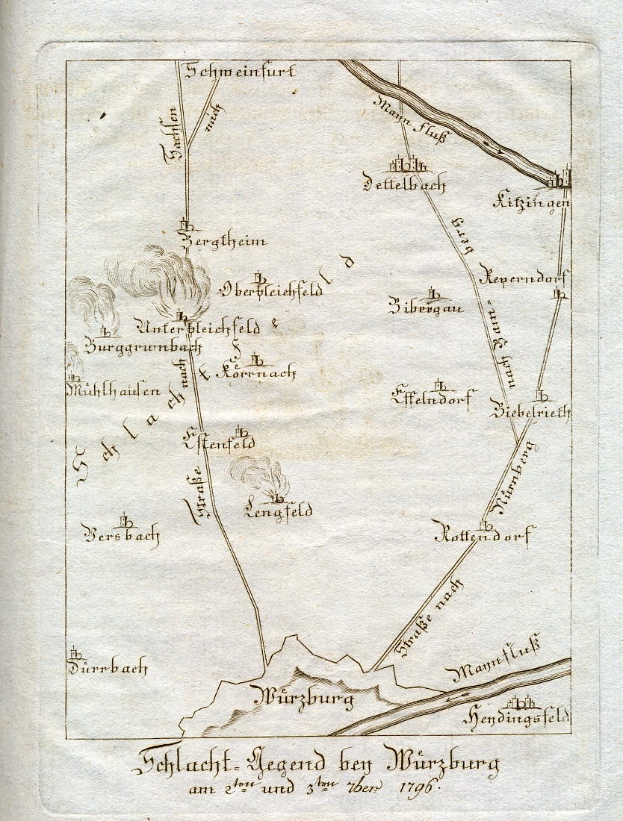 Schweinfurt
Sachsen
nach
Mayn Fluß
Dettelbach
Kitzingen
Bergtheim
berg
Oberpleichfeld
Reperndorf
Bibergau
Unterpleichfeld
Burggrumbach
Körrnach
Mühlhausen
nach
nach Bam-
Effelndorf
Biebelrieth
Schlachtfeld
Estenfeld
Straße
Lengfeld
Nürnberg
Versbach
Rottendorf
Straße nach
Dürrbach
Maynfluß
Würzburg
Heydingsfeld
Schlacht-Gegend bey Würzburg
am 2ten und 3ten 7ber 1796.